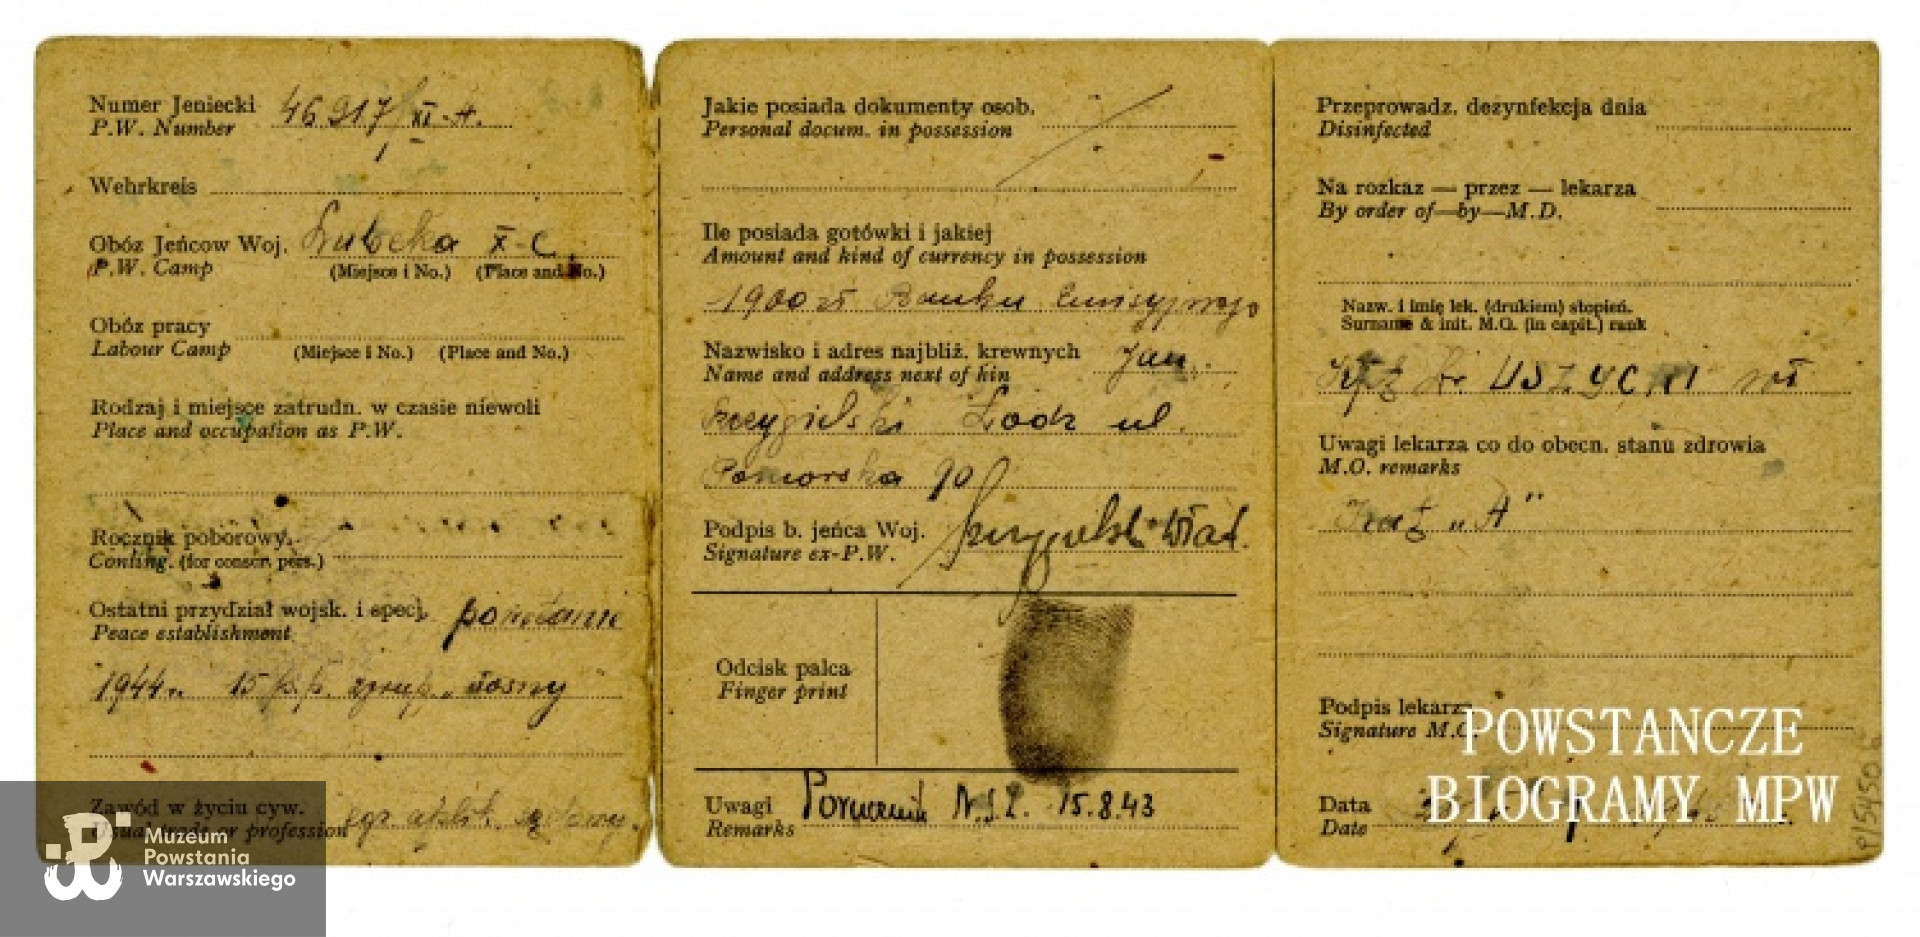 Numer Jeniecki 46917/XI-A.
P.W. Number
Wehrkreis
Obóz Jeńcow Woj. Lubeka X-C.
P.W. Camp (Miejsce i No.) (Place and No.)
Obóz pracy
Labour Camp (Miejsce i No.) (Place and No.)
Rodzaj i miejsce zatrudn. w czasie niewoli
Place and occupation as P.W.
Rocznik poborowy.
Conting. (for conscr. pers.)
Ostatni przydział wojsk. i specj. powstanie
Peace establishment
1944 r. 15 p.p. zgrup.
Zawód w życiu cyw. aplik. sądowy.
Usual trade or profession
Muzeum
Powstania
Warszawskiego
Jakie posiada dokumenty osob.
Personal docum. in possession
Ile posiada gotówki i jakiej
Amount and kind of currency in possession
1900 zł Banku Emisyjnego
Nazwisko i adres najbliż. krewnych Jan
Name and address next of kin
Szczygielski Łódz ul.
Pomorska 90
Podpis b. jeńca Woj. Szczygielski Wład.
Signature ex-P.W.
Odcisk palca
Finger print
Uwagi Porucznik N.S.Z. 15.8.43
Remarks
Przeprowadz. dezynfekcja dnia
Disinfected
Na rozkaz — przez — lekarza
By order of—by—M.D.
Nazw. i imię lek. (drukiem) stopień.
Surname & init. M.O. (in capit.) rank
dr USZYCKI
Uwagi lekarza co do obecn. stanu zdrowia
M.O. remarks
"A"
Podpis lekarza
Signature M.O.
POWSTAŃCZE
BIOGRAMY MPW
Data
Date
P/5450